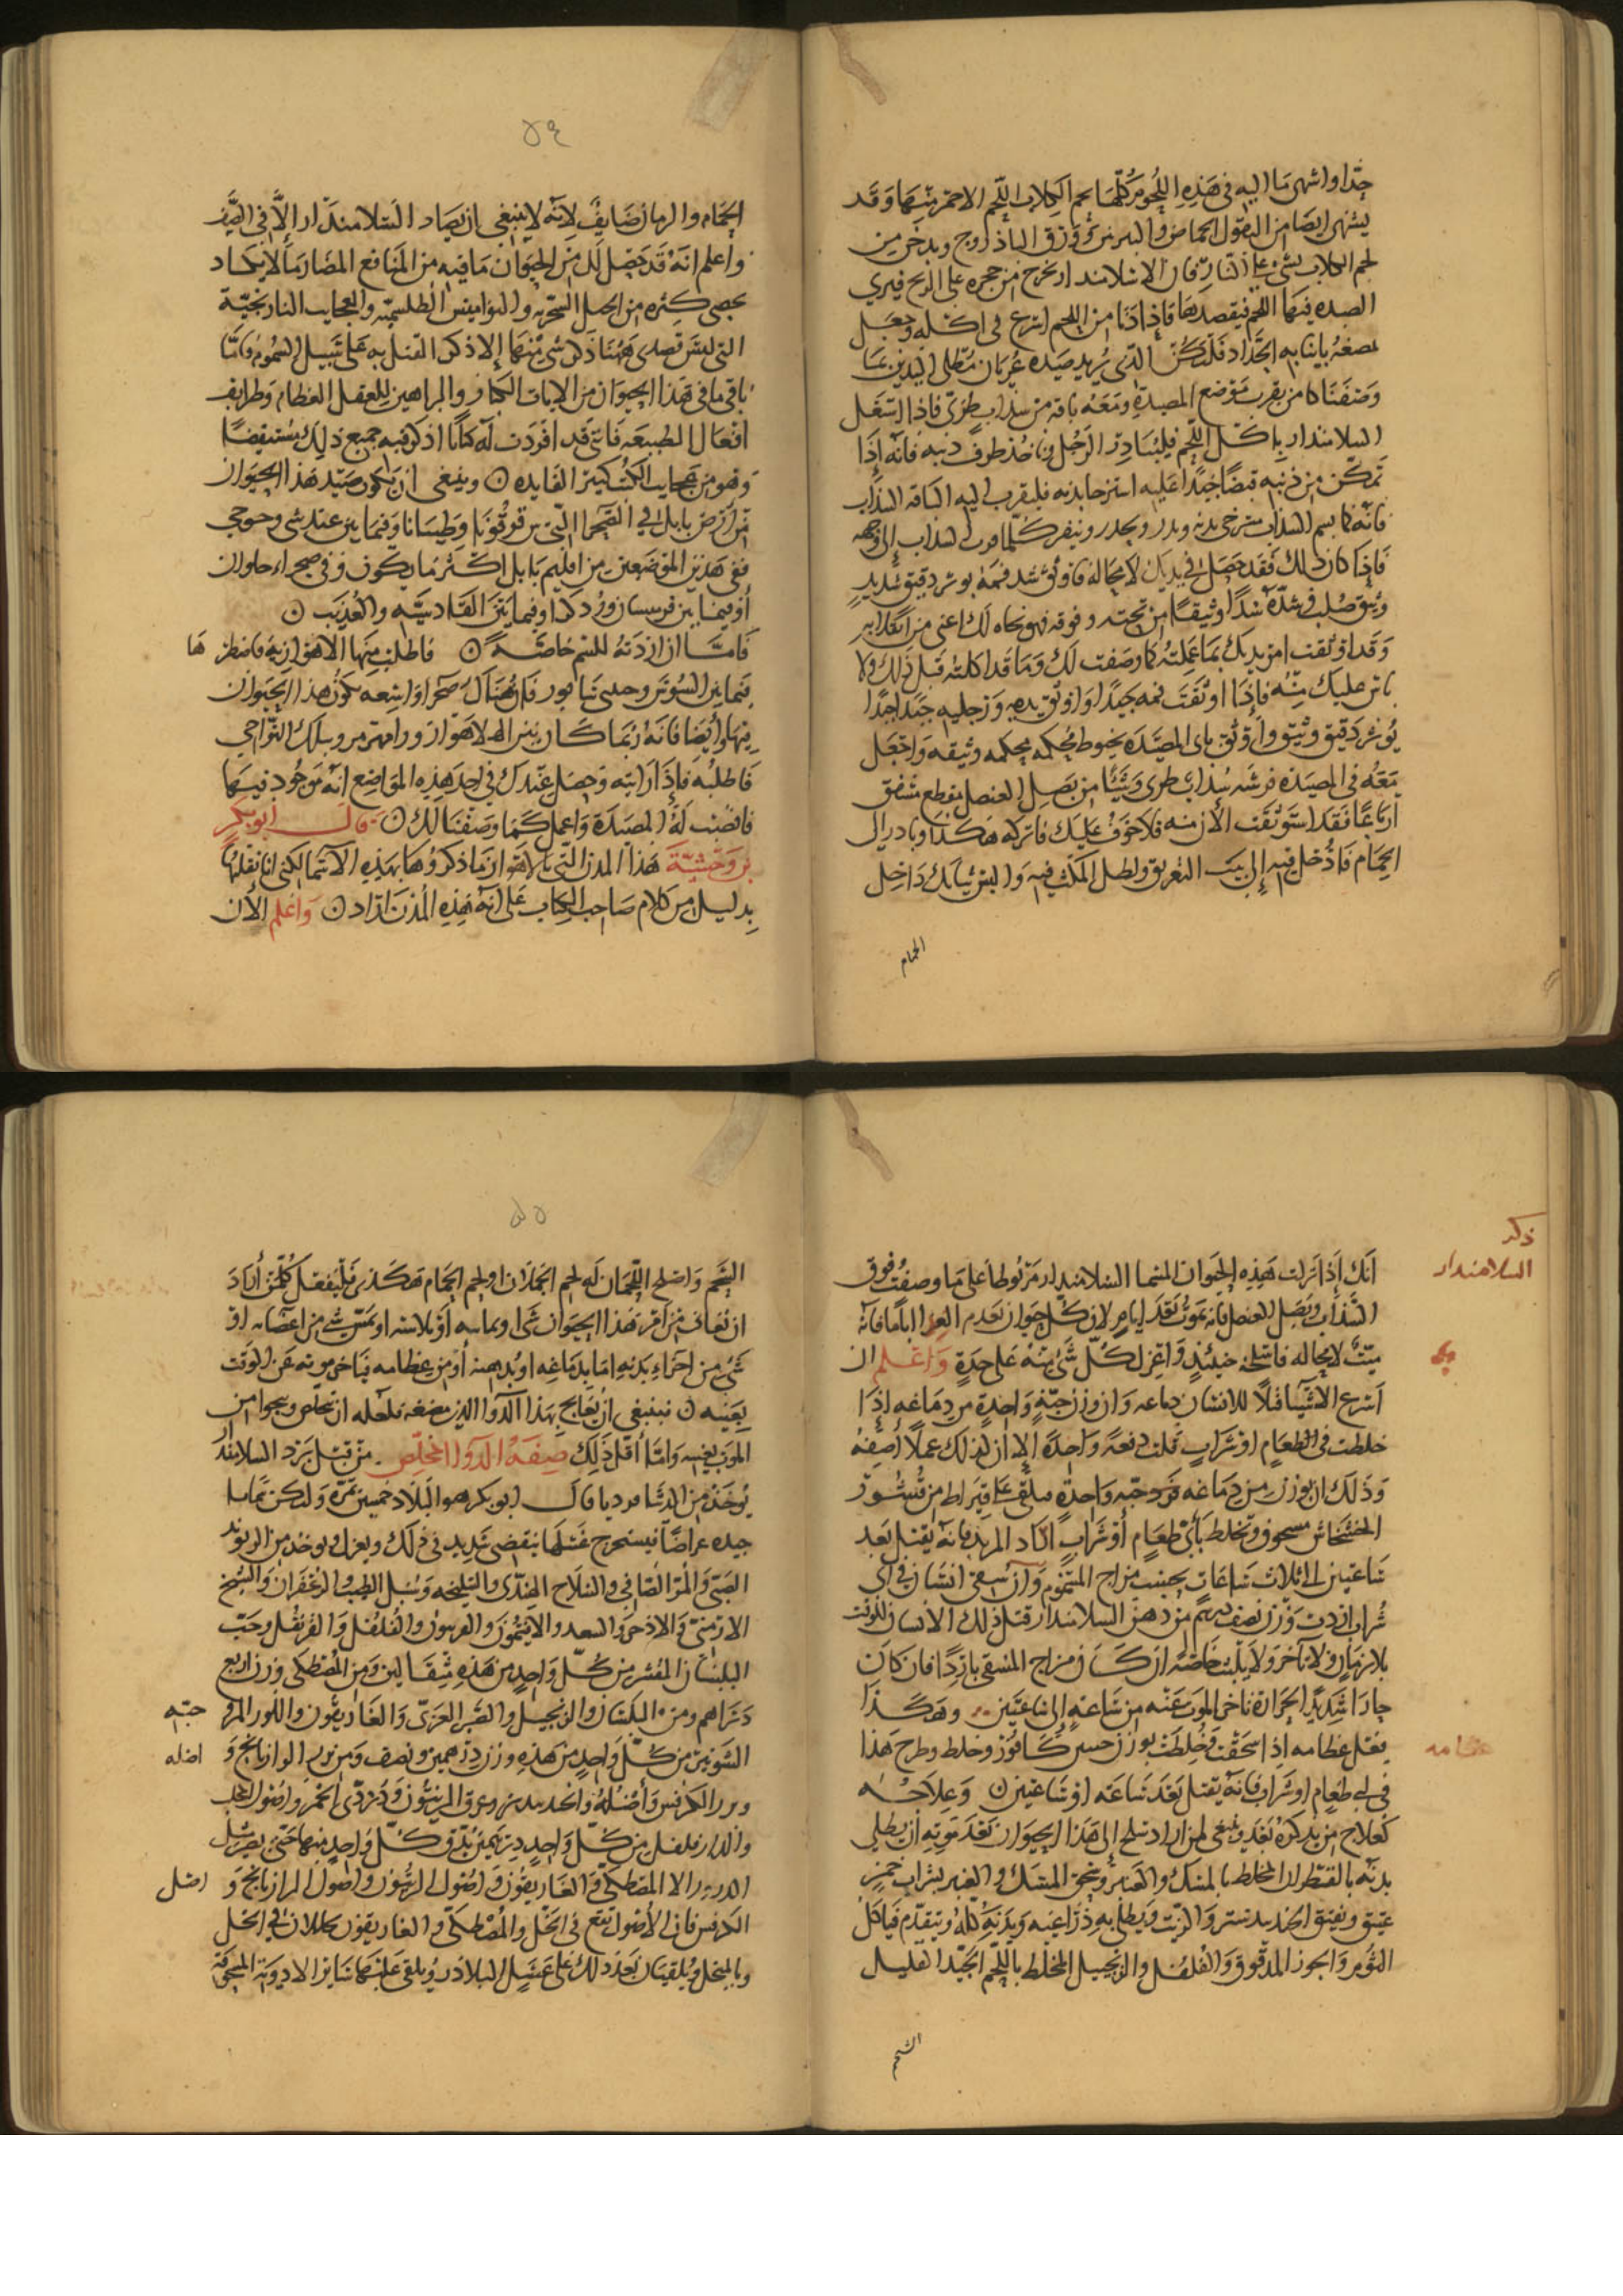 جدا واشهى ما اليه فى هذه اللحوم كلها لحم الكلاب اللحم الاحمر منها وقد
يشتهى ايضا من البقول الحماض والسرمق وورق الباذروج ويدخن من
لحم الكلاب بشى على النار فان السلامندار يخرج من حجره على الريح فيرى
المصيدة فيها اللحم فيقصدها فاذا دنا من اللحم اسرع فى اكله وجعل
يمضغه بانيابه الحداد فليكن الذى يريد صيده عريان مطلى اليدين بما
وصفنا كامن بقرب موضع المصيدة ومعه باقة من سذاب طرى فاذا اشتغل
السلامندار باكل اللحم فليبادر الرجل فياخذ طرف ذنبه فانه اذا
تمكن من ذنبه قبضا جيدا عليه استرخا بدنه فليقرب اليه الباقة السذاب
فانه كما يشم السذاب يسترخى بدنه ويخدر وينفر كلما قرب السذاب الى وجهه
فاذا كان ذلك فقد حصل فى يديك لا محالة فاوثق شد فمه بوتر دقيق شديد
وثيق صلب فى شدة شدا وثيقا من تحته وفوقه فهو نجاة لك اعنى من انكلابه
وقد اوثقت من يديك بما عملته كما وصفت لك وما قد اكلته قبل ذلك ولا
باس عليك منه فاذا اوثقت فمه جيدا واوثق يديه ورجليه جيدا جدا
بوتر دقيق وثيق واوثق باب المصيدة بخيوط محكمة محكمة وثيقة واجعل
معه فى المصيدة فرشه سذاب طرى وشيئا من بصل العنصل يقطع مشقق
ارباعا فقد استوثقت الان منه فلا خوف عليك فاتركه هكذا وبادر الى
الحمام فادخل فيه الى بيت التعريق ولطل المكث فيه والبس ثيابك داخل
الحمام
٥٤
الحمام والزمان صايف لانه لا ينبغى ان يصاد السلامندار الا فى الصيف
واعلم انه قد حصل لك من الحيوان ما فيه من المنافع المضار ما لا يكاد
يحصى كثره من الحيل السحرية والنواميس الطلسمية والعجايب النارنجية
التى ليس قصدى ههنا ذكر شى منها الا ذكر القتل به على سبيل السموم فاما
باقى ما فى هذا الحيوان من الايات الكبار والبراهين للعقل العظام وطرايف
افعال الطبيعة فانى قد افردت له كتابا اذكر فيه جميع ذلك مستقيضا
وهو من عجايب الكتب كثير الفايدة ن وينبغى ان يكون صيد هذا الحيوان
من ارض بابل فى الصحرا التى بين قوقونا وطيسانا وفيما بين عندشى وحوحى
ففى هذين الموضعين من اقليم بابل اكثر ما يكون وفى صحراء حلوان
او فيما بين قرميسان ودكدا وفيما بين القادسية والعذيب ن
فاما ان اردته للسم خاصة ن فاطلب منها الاهوازية فانظر ها
فيما بين السوس وجندى سابور فان هناك صحرا واسعة يكون هذا الحيوان
فيها وايضا فانه ربما كان بين الاهواز ورامهرمز وبتلك النواحى
فاطلبه فاذا رايته وحصل عندك فى احد هذه المواضع انه موجود فيها
فانصب له المصيدة واعمل كما وصفنا لك ن قال ابو بكر
بن وحشية هذا المدن التى بالاهواز ما ذكروها بهذه الاسما لكنى انا نقلتها
بدليل من كلام صاحب الكتاب على انه هذه المدن اراد ن واعلم الان
ذكر
السلامندار
انك اذا تركت هذه الحيوان المسما السلامندار مربوطا على ما وصفت فوق
السذاب وبصل العنصل فانه يموت بعد ايام لان كل حيوان يعدم الغذا اياما فانه
ميت لا محالة فاسلخه حينئذ واعزل كل شى منه على حدة واعلم ان
اسرع الاشيا قتلا للانسان دماغه وان وزن حبة واحدة من دماغه اذا
خلطت فى الطعام او شراب قتلت دفعة واحدة الا ان لذلك عملا اصفه
وذلك ان يوزن من دماغه قدر حبة واحدة فيلقى على قيراط من قشور
الخشخاش مسحوق وتخلط باى طعام او شراب اراد المريد فانه يقتل بعد
ساعتين الى ثلاث ساعات بحسب مزاج المسموم وان سقى انسان فى اى
شراب اردت وزن نصف درهم من دهن السلامندار قتل ذلك الانسان للوقت
بلا زمان ولا تاخر ولا يلبث خاصة ان كان مزاج المسقى باردا فان كان
حارا شديد الحرارة تاخر الموت عنه من ساعة الى ساعتين وهكذا
عظامه
يفعل عظامه اذا سحقت وخلطت بوزن خمس كافور وخلط وطرح هذا
فى اى طعام او شراب فانه يقتل بعد ساعة او ساعتين ن وعلاجه
كعلاج من نذكره بعد وينبغى لمن اراد سلخ هذا الحيوان بعد موته ان يطلى
بدنه بالقطران المخلط بالمسك والعنبر ويسحق المسك والعنبر بشراب خمر
عتيق ويفتق الجندبيدستر والزيت ويطلى به ذراعيه وبدنه كله ويتقدم فياكل
الثوم والجوز المدقوق والفلفل والزنجبيل المخلط باللحم الجيد القليل
الشحم
٥٥
الشحم واصلح اللحمان له لحم الجملان او لحم الحمام هكذى فليفعل كلمن اراد
ان يعانى من امر هذا الحيوان شى او بماسه او بلامسه او يمس شى من اعضايه او
شى من اجزاء بدنه اما بدماغه او بدهنه او من عظامه فتاخر موته عن الوقت
بعينه ن فينبغى ان يعالج بهذا الدوا الذى نصفه فلعله ان يتخلص وينجوا من
الموت بنفسه واما اقل ذلك صفة الدوا المخلص من قتل برد السلامندار
يوخذ من البلادر قال ابو بكر هو البلادر خمسين ثمرة ولتكن ثمارا
جيدة عراضا فيستخرج عسلها بتقصى شديد فى ذلك ويعزل ويوخذ من الريوند
الصينى والمر الصافى والسادج الهندى والسليخة وسنبل الطيب والزعفران والشيح
الارمنى والاذخر والسعد والافيثمون والفربيون والفلفل والقرنفل وحب
البلسان المقشر من كل واحد من هذه مثقالين ومن المصطكى وزن اربع
دراهم ومن البلسان والزنجبيل والصبر العربى والغاريقون واللوز المر حبه
الشونيز من كل واحد من هذه وزن درهمين ونصف ومن بزر الرازيانج و اصله
وبزر الكرفس واصله والجندبيدستر وعروق الزيتون ودردى الخمر واصول الخل
والدارفلفل من كل واحد درهمين يدق كل واحد منها حتى يصير مثل
الذرور الا المصطكى والغاريقون واصول الزيتون واصول الرازيانج و اصل
الكرفس فان الاصول تنقع فى الخل والمصطكى والغاريقون يحللان فى الخل
وبالخل ويلقيان بعد ذلك على عسل البلادر ويلقى عليها سائر الادوية المسحوقة